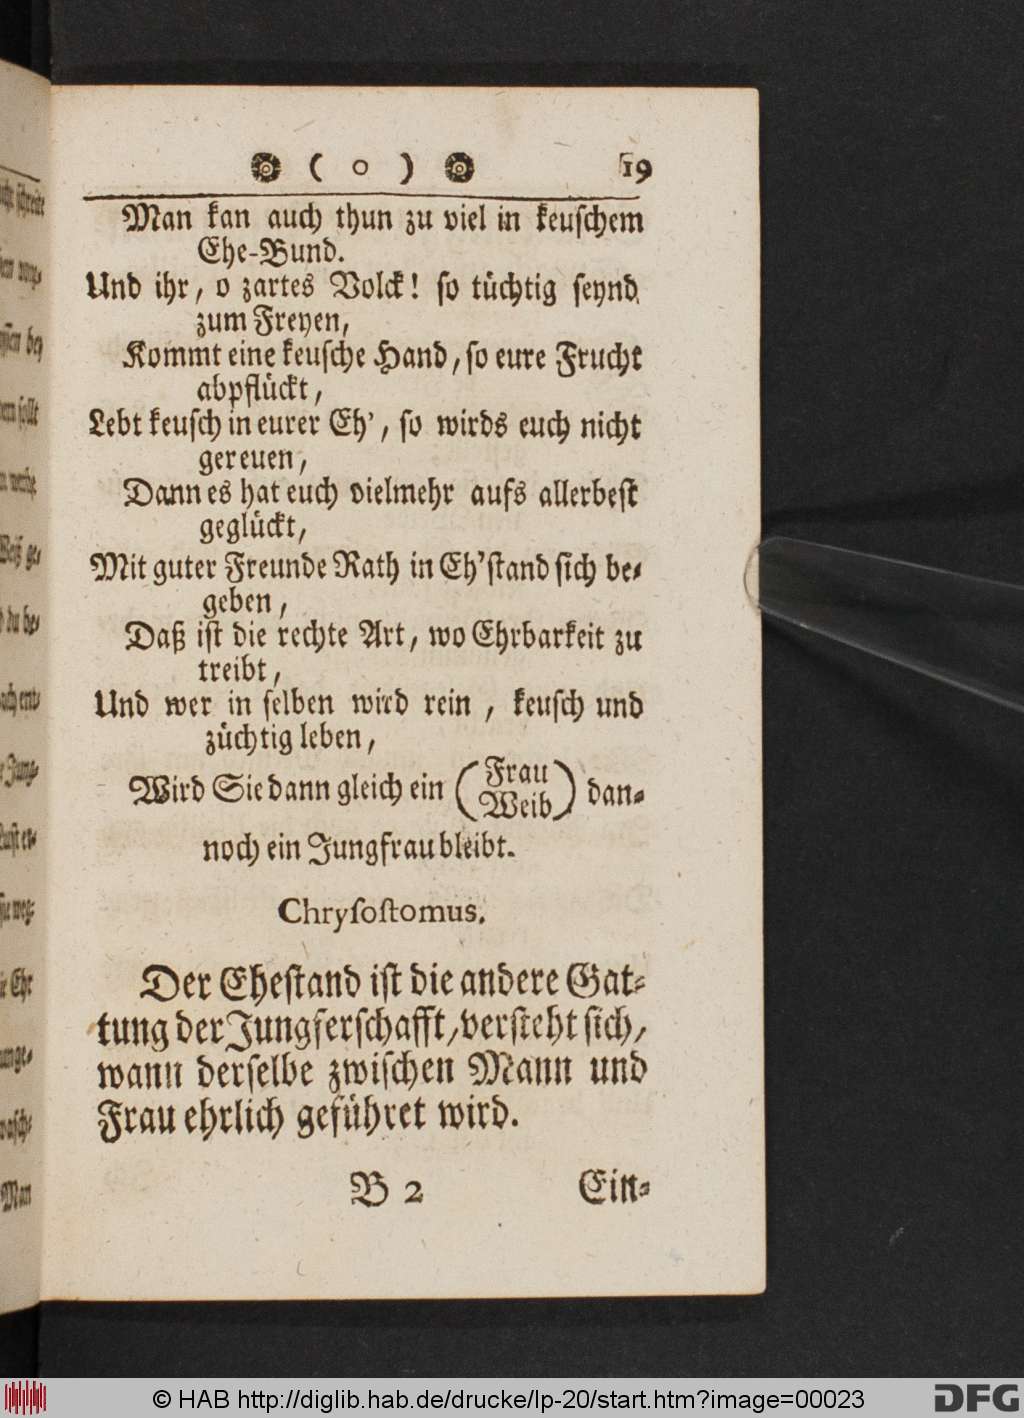 ( o ) 19
Man kan auch thun zu viel in keuschem
Ehe-Bund.
Und ihr, o zartes Volck! so tüchtig seynd
zum Freyen,
Kommt eine keusche Hand, so eure Frucht
abpflückt,
Lebt keusch in eurer Eh', so wirds euch nicht
gereuen,
Dann es hat euch vielmehr aufs allerbest
geglückt,
Mit guter Freunde Rath in Eh'stand sich be-
geben,
Daß ist die rechte Art, wo Ehrbarkeit zu
treibt,
Und wer in selben wird rein, keusch und
züchtig leben,
Wird Sie dann gleich ein (Frau
Weib) dan-
noch ein Jungfrau bleibt.
Chrysostomus.
Der Ehestand ist die andere Gat-
tung der Jungferschafft/ versteht sich/
wann derselbe zwischen Mann und
Frau ehrlich geführet wird.
B 2 Ein-
bey
sollt
Ehr
Man
© HAB http://diglib.hab.de/drucke/lp-20/start.htm?image=00023
DFG